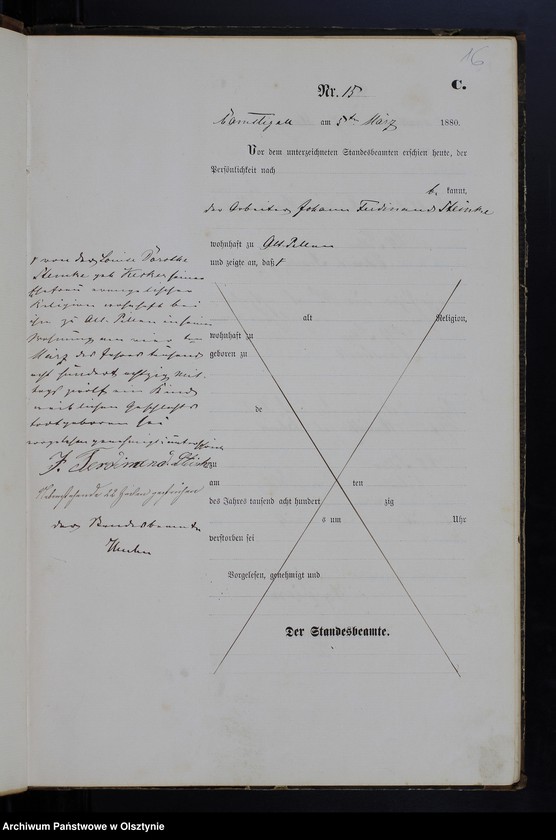 16
Nr. 15
C.
am 5ten März 1880.
Vor dem unterzeichneten Standesbeamten erschien heute, der
Persönlichkeit nach
be kannt,
der Arbeiter Johann Ferdinand Stemke
wohnhaft zu Alt Pillau
und zeigte an, daß
von der Louise Dorothe
Stemke geb seiner
Ehefrau evangelischer
Religion wohnhaft bei
ihm zu Alt. Pillau in seiner
Wohnung am vier ten
März des Jahres tausend
acht hundert achtzig mit-
tags zwölf ein Kind
weiblichen Geschlechts
todtgeboren sei
vorgelesen genehmigt unterschrieben
F. Ferdinand
22 gestrichen
der Standesbeamte
alt Religion,
wohnhaft zu
geboren zu
de
zu
am ten
des Jahres tausend acht hundert zig
s um Uhr
verstorben sei
Vorgelesen, genehmigt und
Der Standesbeamte.
Archiwum Państwowe w Olsztynie